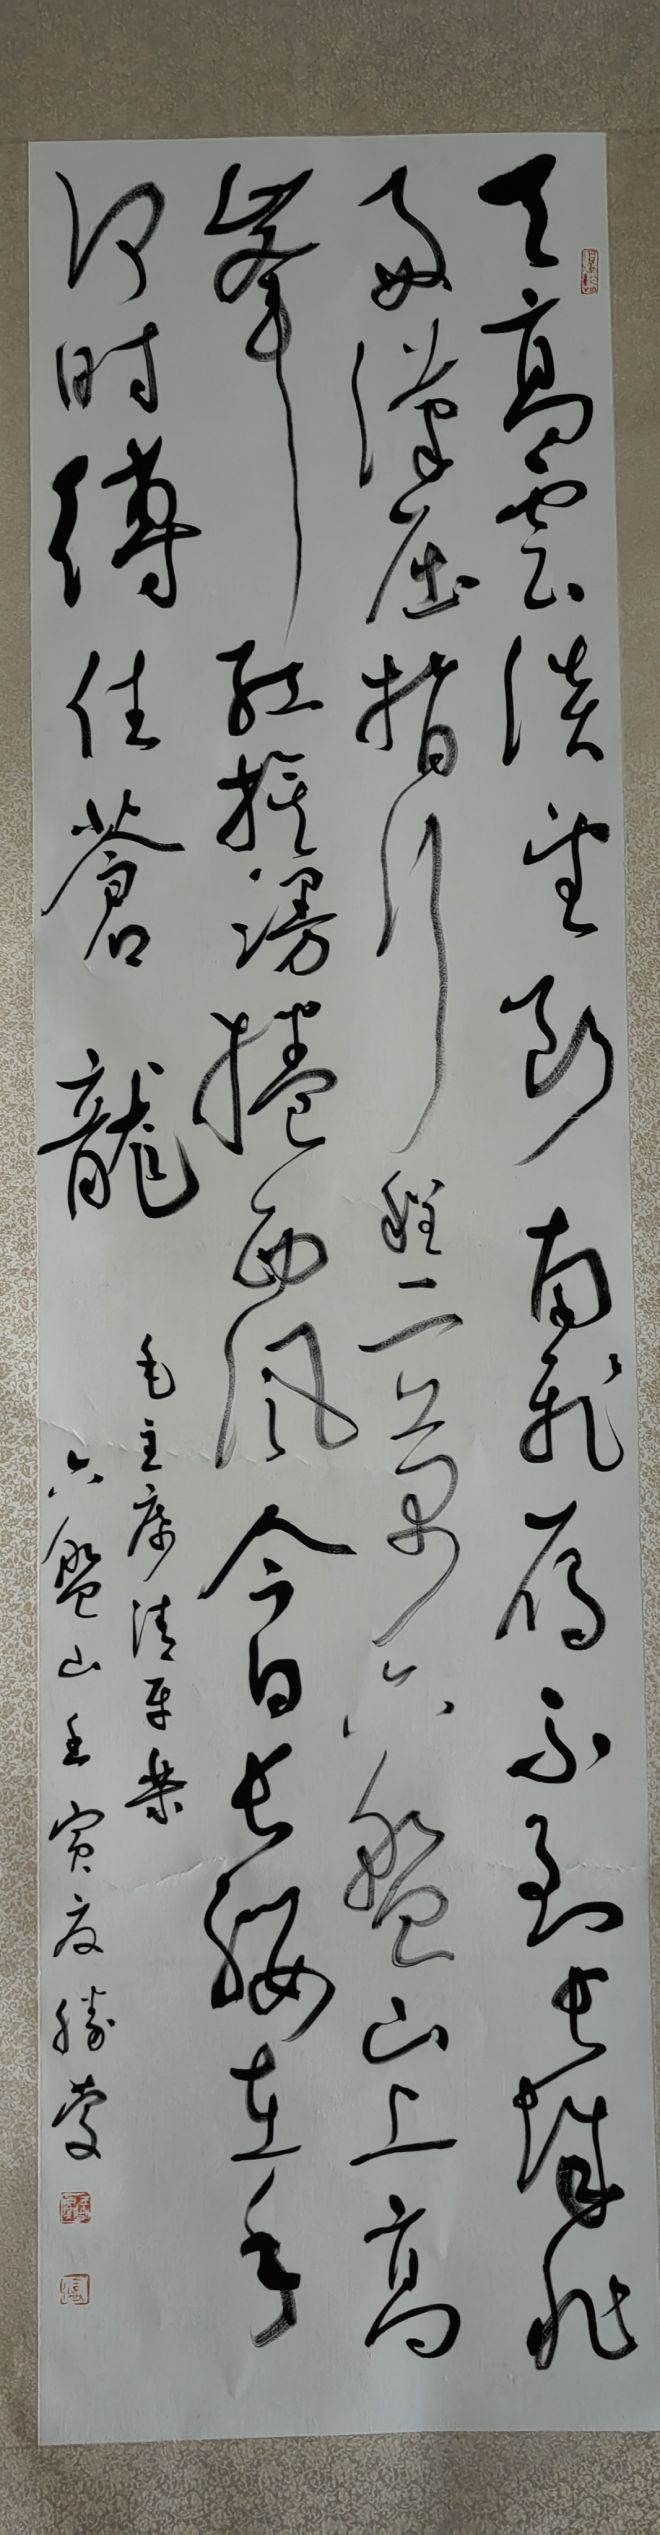 天高雲淡望断南飛雁不到長城非
好漢屈指行程二萬六盤山上高
峯紅旗漫捲西風今日長纓在手
何时縛住蒼龍
毛主席清平樂
六盤山壬寅夏勝